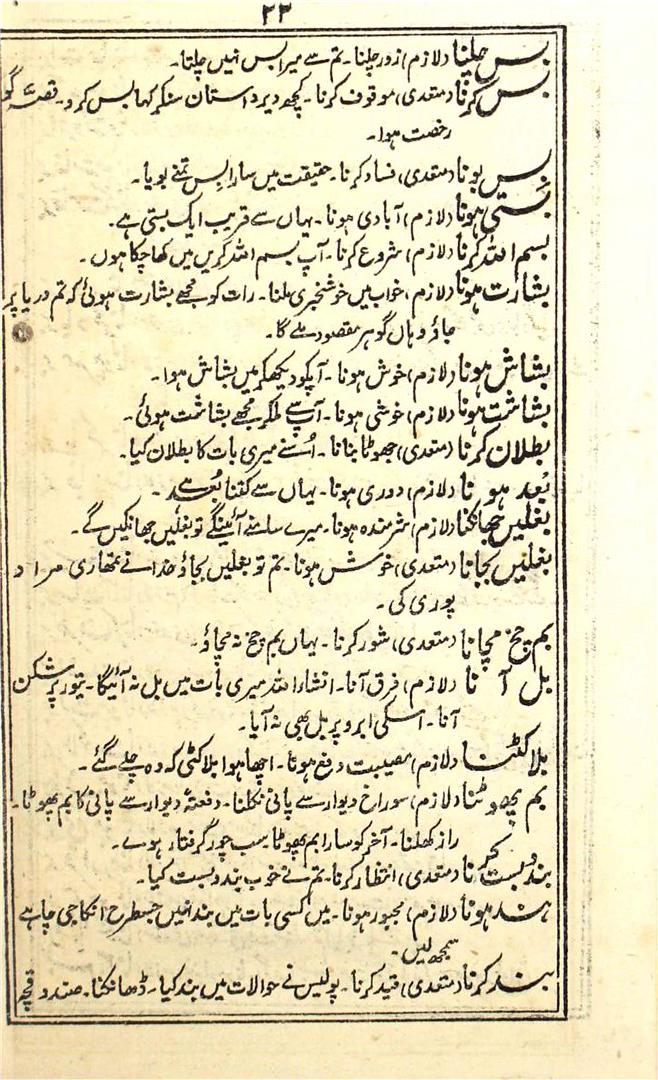 ۲۳
بس چلنا (لازم) زور چلنا۔ تم سے میرا بس نہیں چلتا۔
بس کرنا (متعدی) موقوف کرنا۔ کچھ دیر داستان سنکر کہا بس کرو۔ قصہ گو
رخصت ہوا۔
بس بونا (متعدی) فساد کرنا۔ حقیقت میں سارا بس تمنے بویا۔
بستی ہونا (لازم) آبادی ہونا۔ یہاں سے قریب ایک بستی ہے۔
بسم اللہ کرنا (لازم) شروع کرنا۔ آپ بسم اللہ کریں میں کھا چکا ہوں۔
بشارت ہونا (لازم) خواب میں خوشخبری ملنا۔ رات کو مجھے بشارت ہوئی کہ تم دریا پر
جاؤ وہاں گوہر مقصود ملے گا۔
بشاش ہونا (لازم) خوش ہونا۔ آپکو دیکھکر میں بشاش ہوا۔
بشاشت ہونا (لازم) خوشی ہونا۔ آپ سے ملکر مجھے بشاشت ہوئی۔
بطلان کرنا (متعدی) جھوٹا بنانا۔ اُسنے میری بات کا بطلان کیا۔
بُعد ہونا (لازم) دوری ہونا۔ یہاں سے کتنا بُعد ہے۔
بغلیں جھانکنا (لازم) شرمندہ ہونا۔ میرے سامنے آئینگے تو بغلیں جھانکیں گے۔
بغلیں بجانا (متعدی) خوش ہونا۔ تم تو بغلیں بجاؤ خدا نے تمھاری مراد
پوری کی۔
بم چخ مچانا (متعدی) شور کرنا۔ یہاں بم چخ نہ مچاؤ۔
بل آنا (لازم) فرق آنا۔ انشاء اللہ میری بات میں بل نہ آئیگا۔ تیور پر شکن
آنا۔ اسکی ابرو پر بل بھی نہ آیا۔
بلا کٹنا (لازم) مصیبت دفع ہونا۔ اچھا ہوا بلا کٹی کہ وہ چلے گئے۔
بم پھوٹنا (لازم) سوراخ دیوار سے پانی نکلنا۔ دفعتہً دیوار سے پانی کا بم پھوٹا۔
راز کھلنا۔ آخر کو سارا بم پھوٹا سب چور گرفتار ہوے۔
بندوبست کرنا (متعدی) انتظار کرنا۔ تم نے خوب بندوبست کیا۔
بند ہونا (لازم) مجبور ہونا۔ میں کسی بات میں بند نہیں جسطرح انکا جی چاہے
سمجھ لیں۔
بند کرنا (متعدی) قید کرنا۔ پولیس نے حوالات میں بند کیا۔ ڈھانکنا۔ صندوقچہ